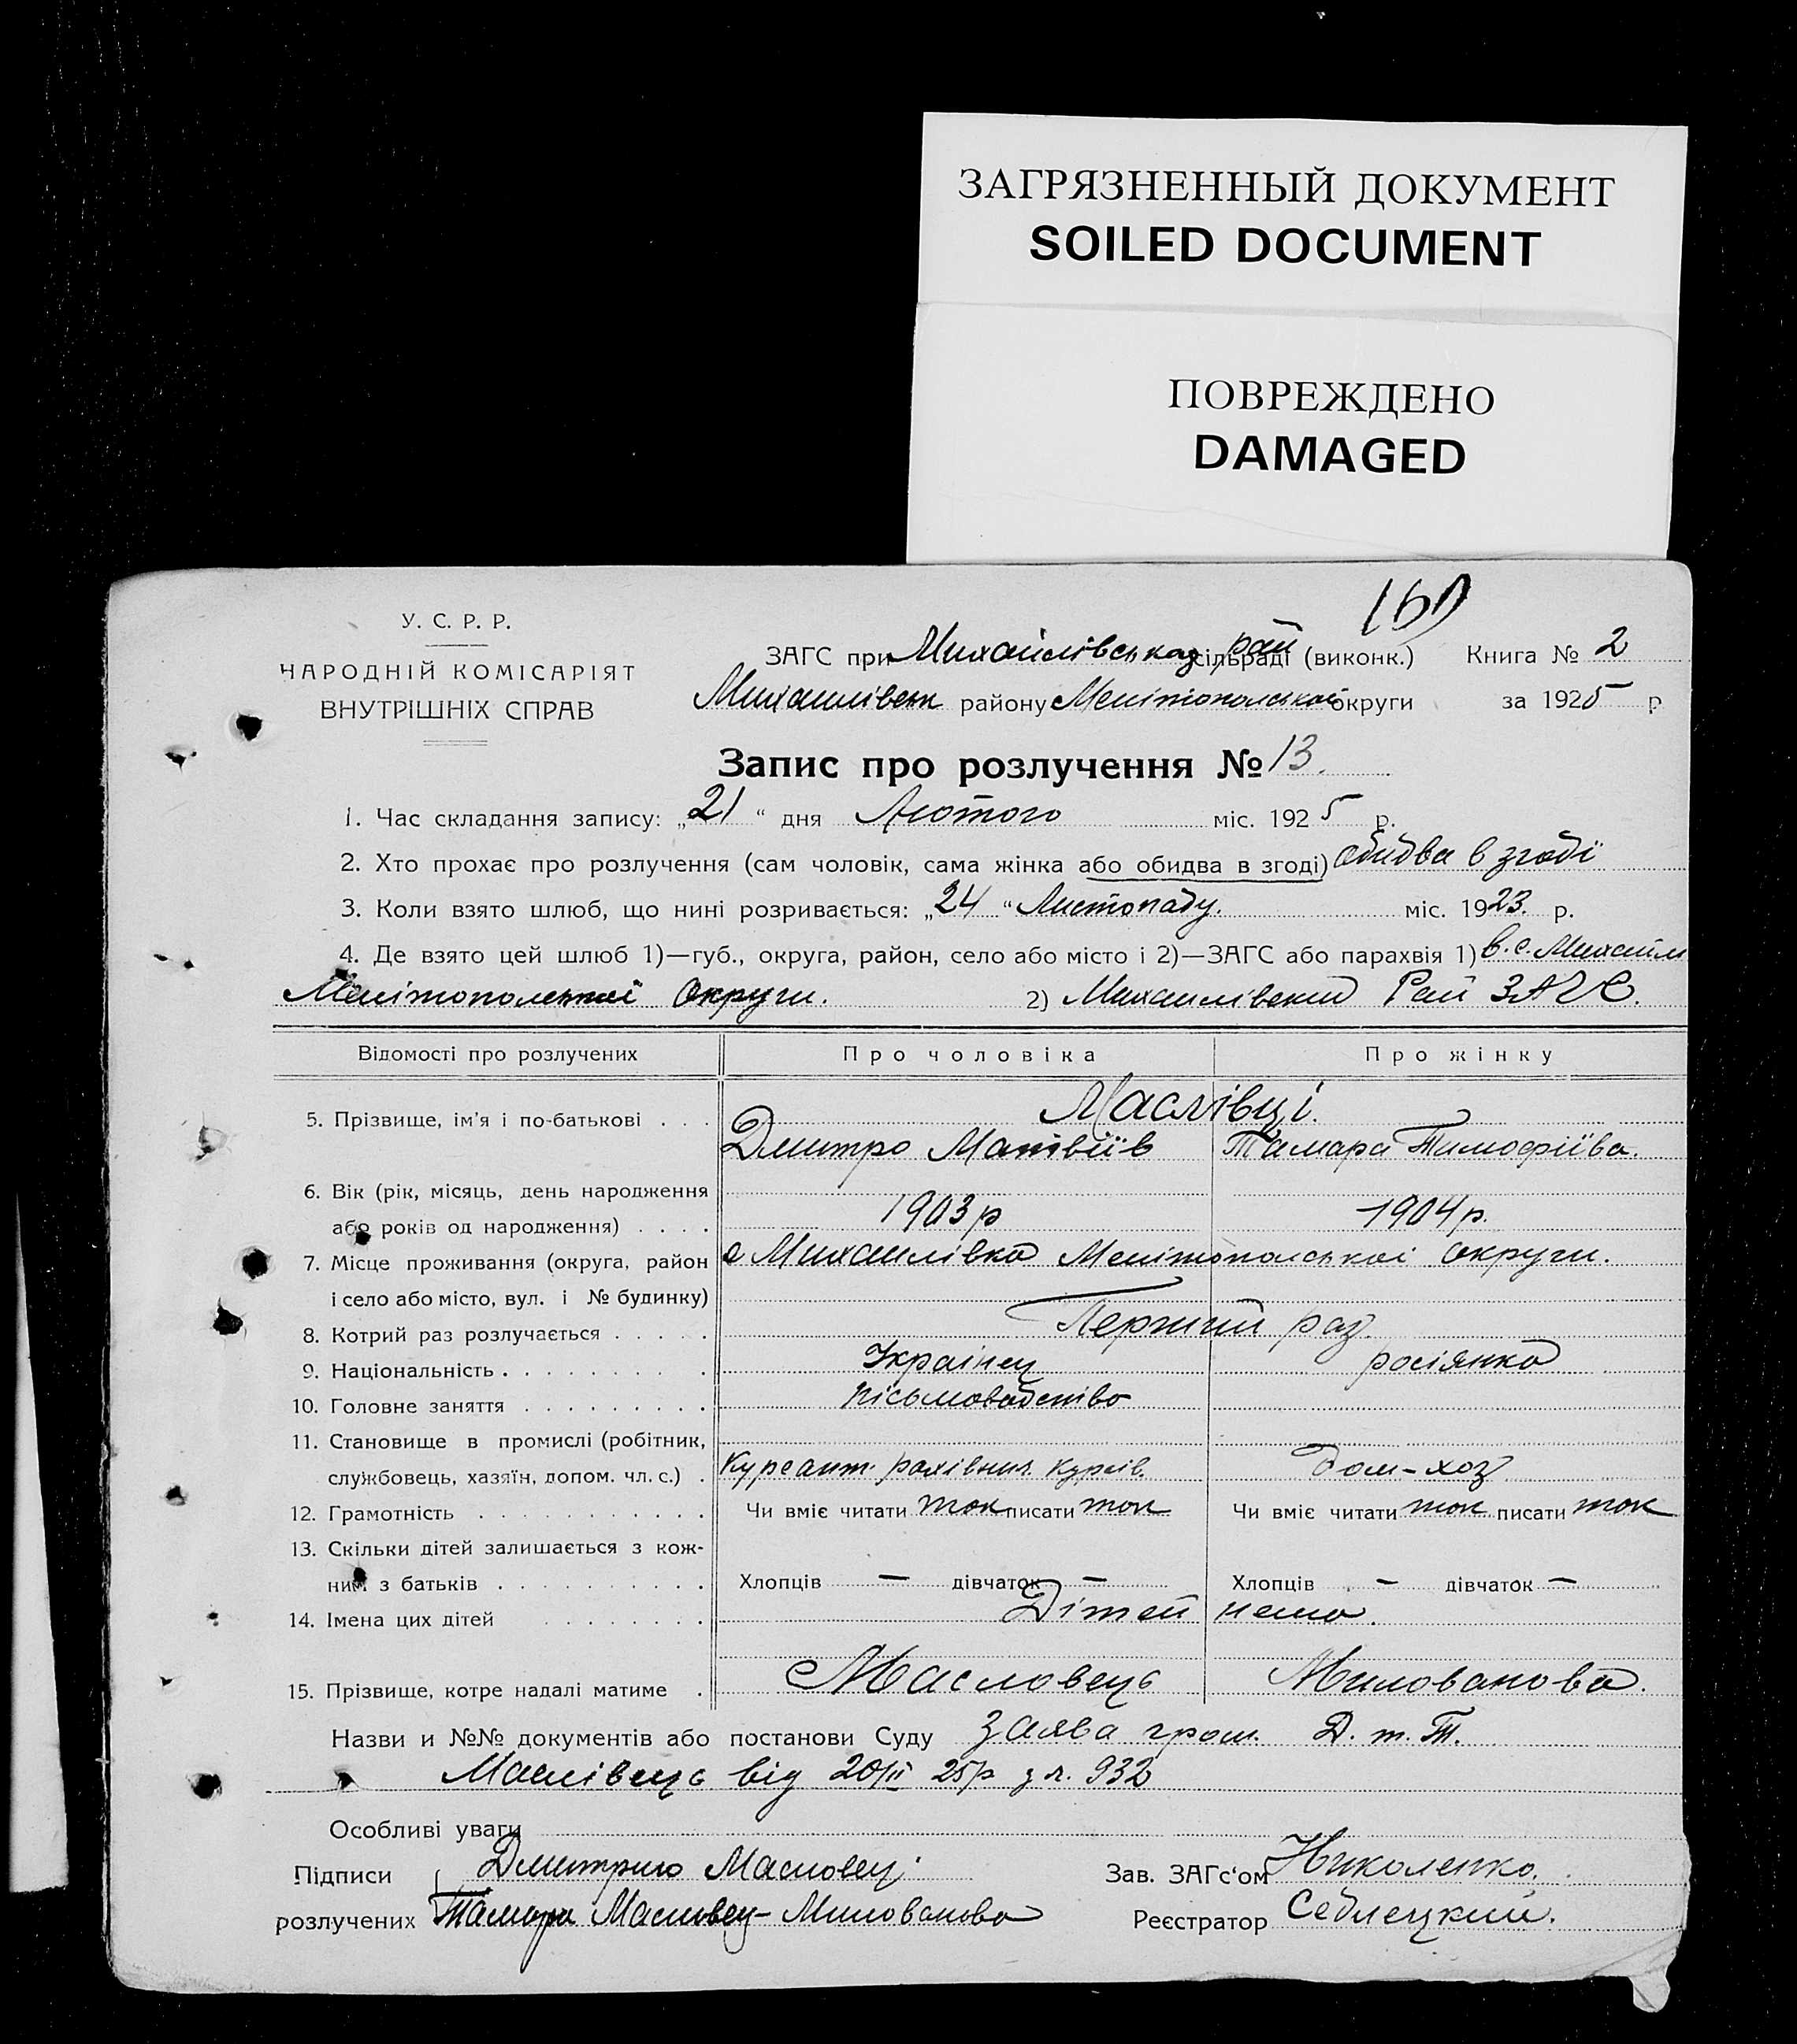 ЗАГРЯЗНЕННЫЙ ДОКУМЕНТ
SOILED DOCUMENT
ПОВРЕЖДЕНО
DAMAGED
160
У. С. Р. Р.
НАРОДНІЙ КОМІСАРІЯТ
ВНУТРІШНІХ СПРАВ
ЗАГС при Михайлівськ рай сільраді (виконк.) Книга № 2
Михайлівськ району Мелітопольської округи за 1925 р
Запис про розлучення № 13.
1. Час складання запису: „21“ дня Лютого міс. 1925 р.
2. Хто прохає про розлучення (сам чоловік, сама жінка або обидва в згоді) обидва в згоді
3. Коли взято шлюб, що нині розривається: „24“ Листопаду. міс. 1923. р.
4. Де взято цей шлюб 1)—губ., округа, район, село або місто і 2)—ЗАГС або парахвія 1) в. с. Михайл
Мелітопольскої Округи. 2) Михайлівский Рай ЗАГС.
Відомості про розлучених Про чоловіка Про жінку
5. Прізвище, ім'я і по-батькові . . . Маслівці.
Дмитро Матвіїв Тамара Тимофіїва.
6. Вік (рік, місяць, день народження
або років од народження) . . . . 1903 р 1904 р.
7. Місце проживання (округа, район с Михайлівка Мелітопольскоі округи.
і село або місто, вул. і № будинку)
8. Котрий раз розлучається . . . . . Перший раз.
9. Національність . . . . . . . . . Українец росіянка
10. Головне заняття . . . . . . . . . пісьмоводство
11. Становище в промислі (робітник,
службовець, хазяїн, допом. чл. с.) . Курсант рахівнич. курсів. Дом-хоз
12. Грамотність . . . . . . . . . . . Чи вміє читати так писати так Чи вміє читати так писати так
13. Скільки дітей залишається з кож-
ним з батьків . . . . . . . . . . Хлопців — дівчаток — Хлопців — дівчаток —
14. Імена цих дітей . . . . . . . . Дітей нема.
15. Прізвище, котре надалі матиме . Масловець Милованова.
Назви и №№ документів або постанови Суду Заява гром. Д. т. Т.
Маслівець від 20/II 25р з ч. 932
Особливі уваги
Підписи Дмитрию Масловец
розлучених Тамара Масловец-Милованова
Зав. ЗАГс'ом Николенко.
Реєстратор Седлецкий.